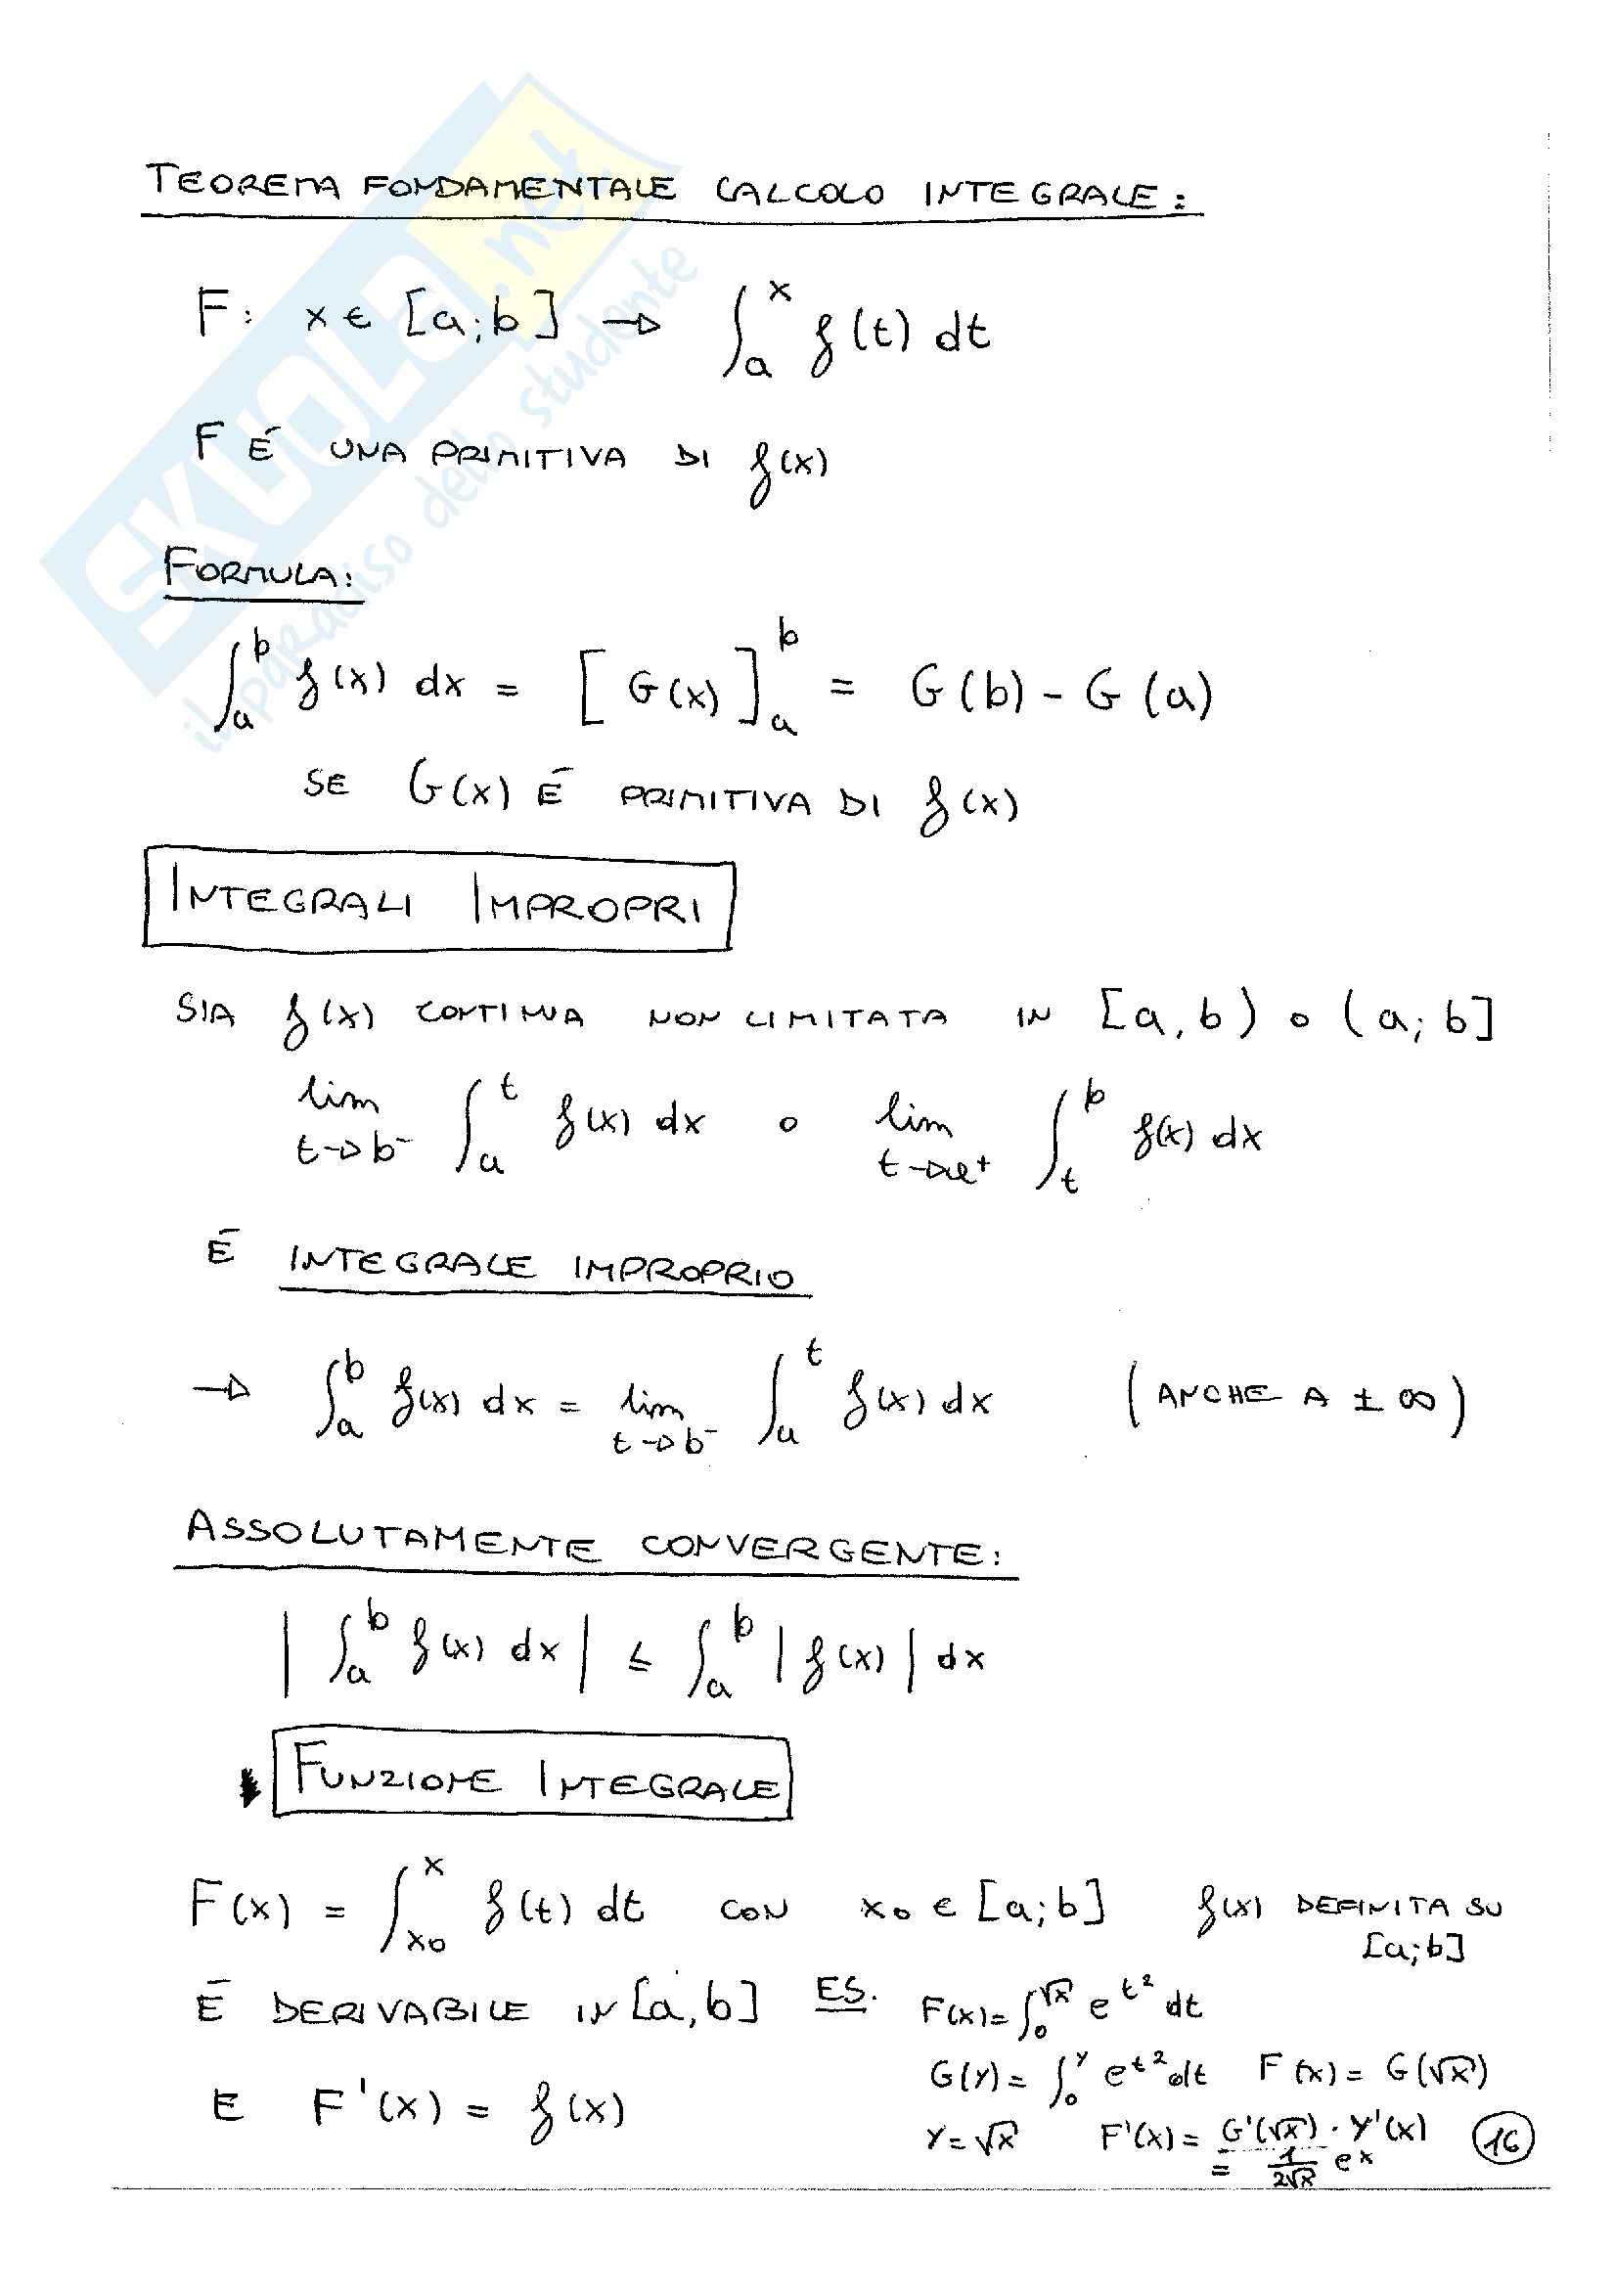 TEOREMA FONDAMENTALE CALCOLO INTEGRALE:
F: x ∈ [a;b] → ∫_a^x f(t) dt
F É UNA PRIMITIVA DI f(x)
FORMULA:
∫_a^b f(x) dx = [G(x)]_a^b = G(b) - G(a)
SE G(x) É PRIMITIVA DI f(x)
INTEGRALI IMPROPRI
SIA f(x) CONTINUA NON LIMITATA IN [a,b) o (a;b]
lim t→b⁻ ∫_a^t f(x) dx o lim t→a⁺ ∫_t^b f(x) dx
É INTEGRALE IMPROPRIO
→ ∫_a^b f(x) dx = lim t→b⁻ ∫_a^t f(x) dx (ANCHE A ± ∞)
ASSOLUTAMENTE CONVERGENTE:
|∫_a^b f(x) dx| ≤ ∫_a^b |f(x)| dx
FUNZIONE INTEGRALE
F(x) = ∫_x0^x f(t) dt CON x0 ∈ [a;b] f(x) DEFINITA SU
[a;b]
É DERIVABILE IN [a,b] ES. F(x) = ∫_0^√x e^t² dt
G(y) = ∫_0^y e^t² dt F(x) = G(√x)
E F'(x) = f(x)
y = √x F'(x) = G'(√x) · y'(x)
= 1/2√x e^x
16
SKUOLA.net
il paradiso dello studente